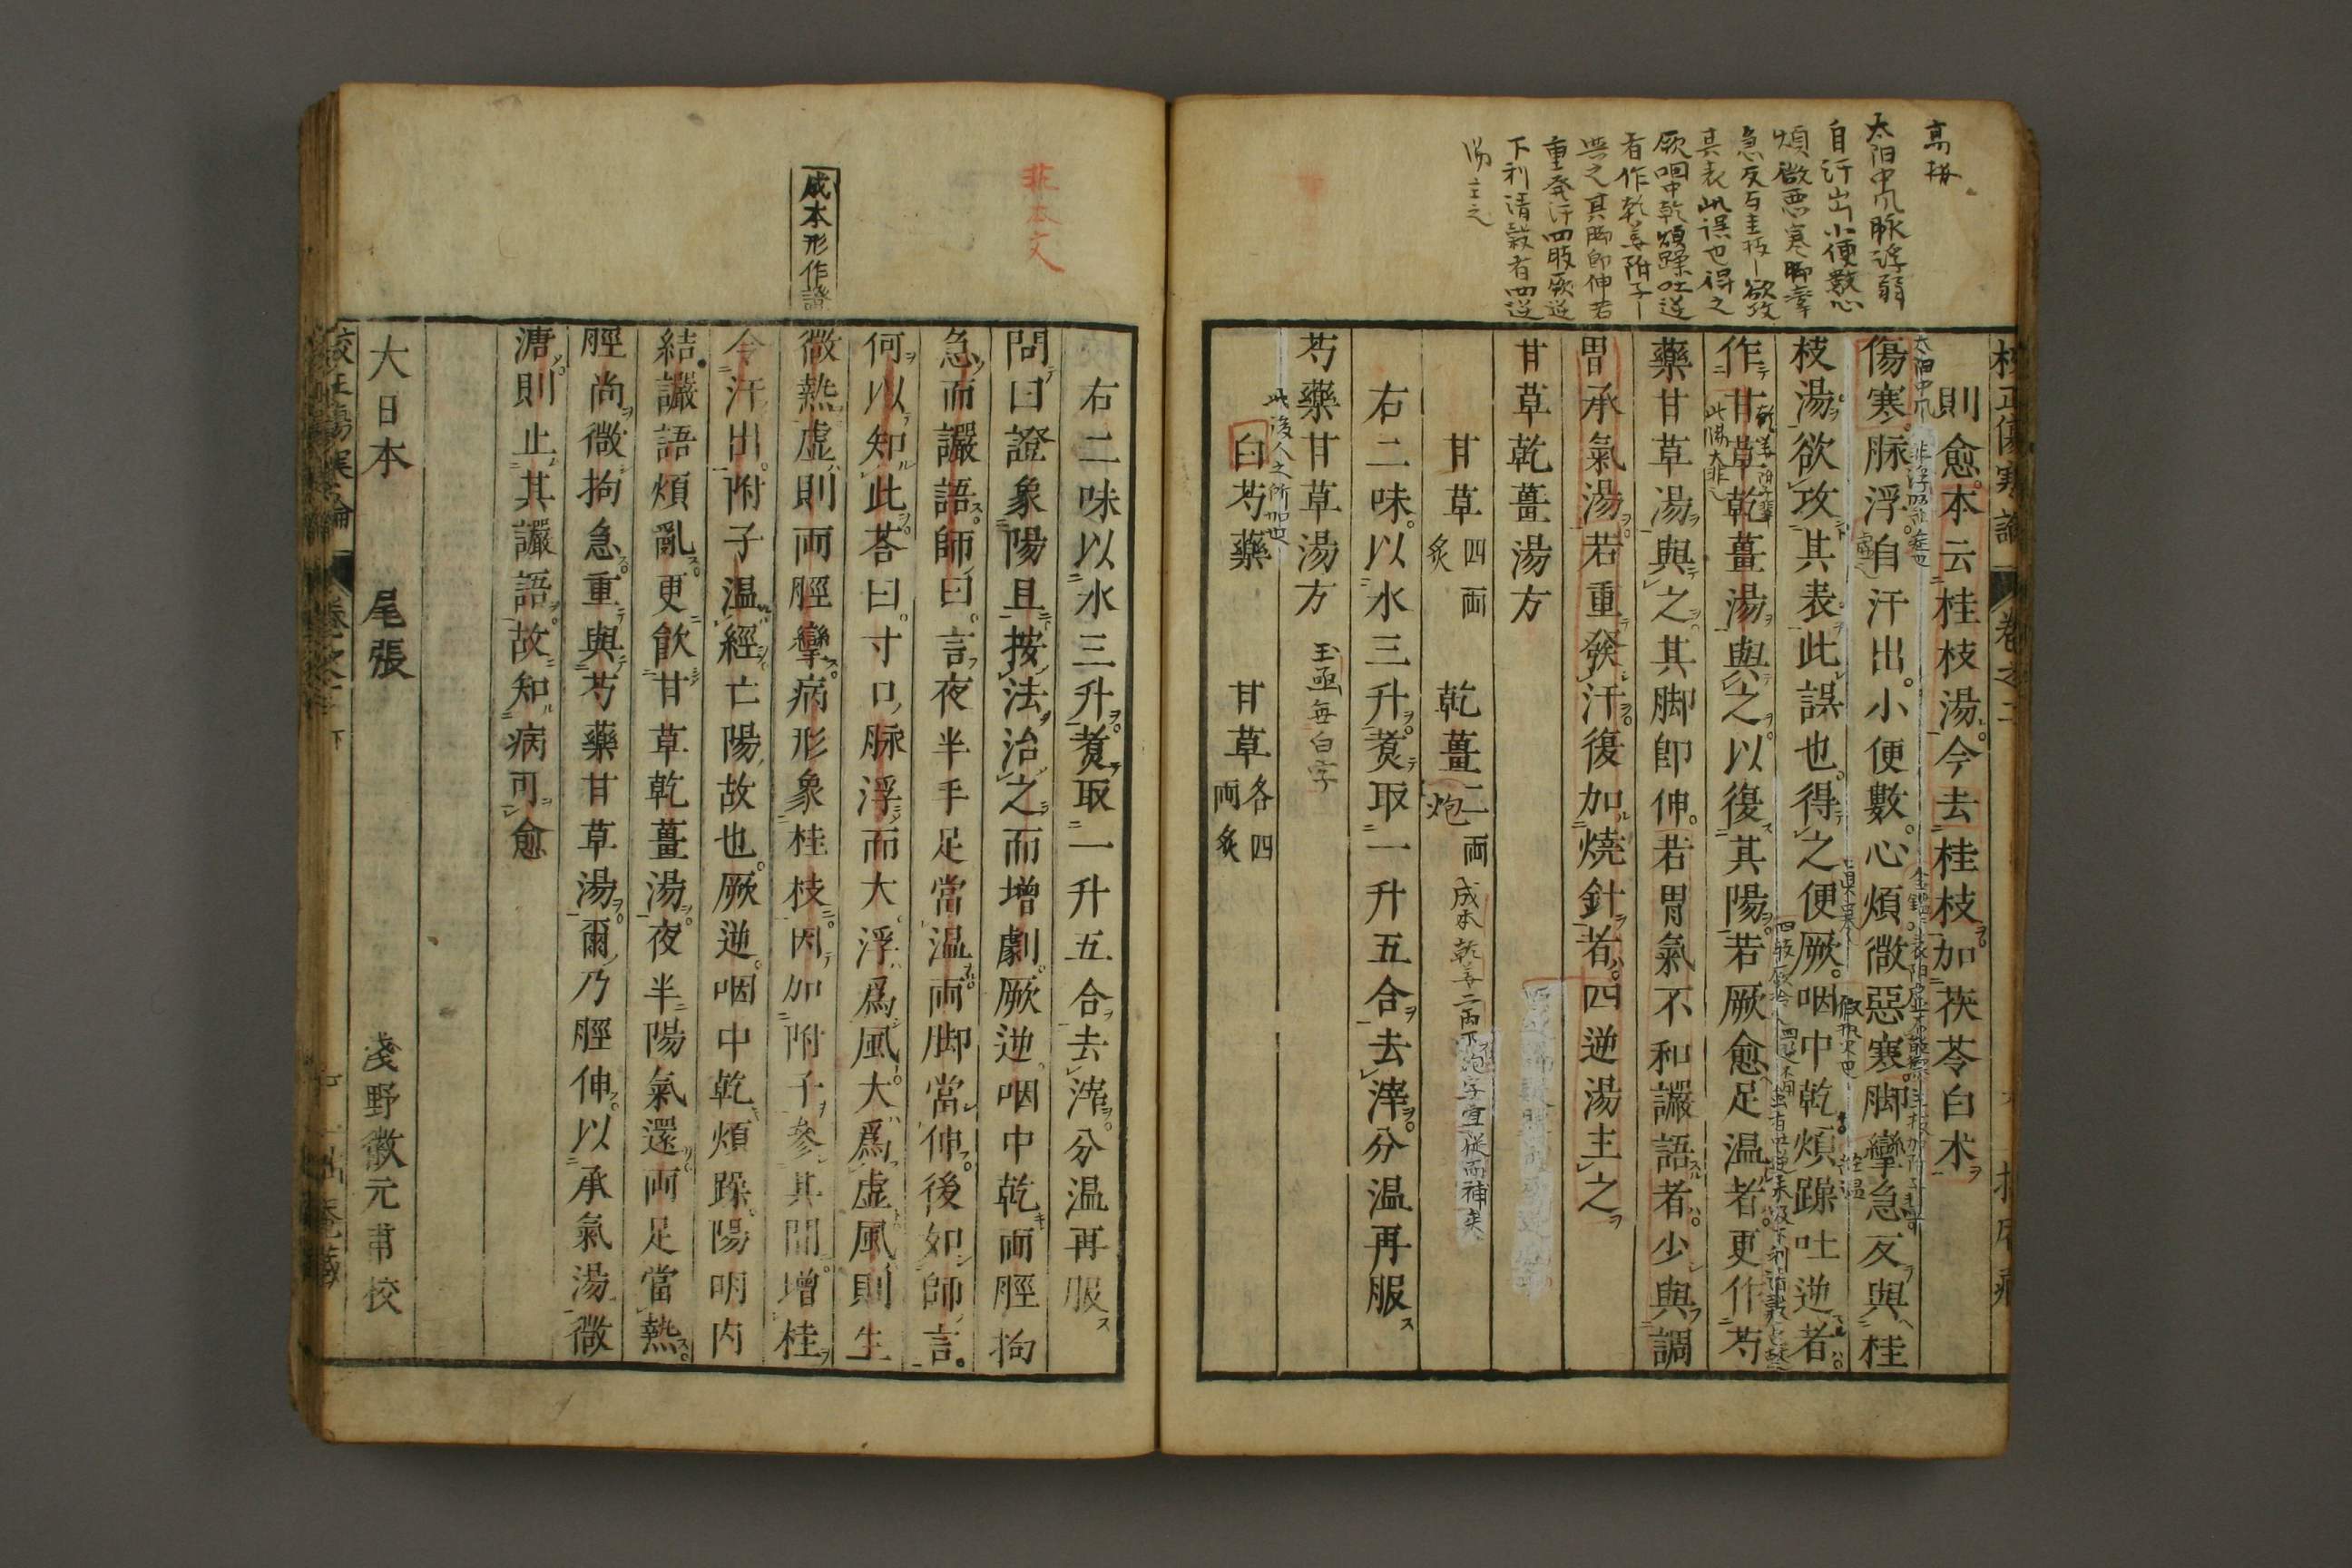 高搆
太陽中風脉浮弱
自汗出小便數心
煩微惡寒脚攣
急反与桂枝欲攻
其表此誤也得之
厥咽中乾煩躁吐逆
者作乾姜附子
与之其脚即伸若
重發汗四肢厥逆
下利清穀者四逆
湯主之
校正傷寒論 卷之二
則愈本云桂枝湯今去桂枝加茯苓白朮
傷寒脉浮自汗出小便數心煩微惡寒脚攣急反與桂
枝湯欲攻其表此誤也得之便厥咽中乾煩躁吐逆者
作甘草乾薑湯與之以復其陽若厥愈足温者更作芍
藥甘草湯與之其脚即伸若胃氣不和讝語者少與調
胃承氣湯若重發汗復加燒針者四逆湯主之
甘草乾薑湯方
甘草四両炙 乾薑二両炮
成本乾姜二両下炮字宜從而補矣
右二味以水三升煑取一升五合去滓分温再服
芍藥甘草湯方
玉函無白字
此後人之所加也
白芍藥 甘草各四両炙
非本文
成本形作證
右二味以水三升煑取一升五合去滓分温再服
問曰證象陽旦按法治之而增劇厥逆咽中乾両脛拘
急而讝語師曰言夜半手足當温両脚當伸後如師言
何以知此荅曰寸口脉浮而大浮爲風大爲虚風則生
微熱虚則両脛攣病形象桂枝因加附子參其間增桂
令汗出附子温經亡陽故也厥逆咽中乾煩躁陽明内
結讝語煩亂更飮甘草乾薑湯夜半陽氣還両足當熱
脛尚微拘急重與芍藥甘草湯爾乃脛伸以承氣湯微
溏則止其讝語故知病可愈
大日本 尾張 淺野徽元甫校
校正傷寒論